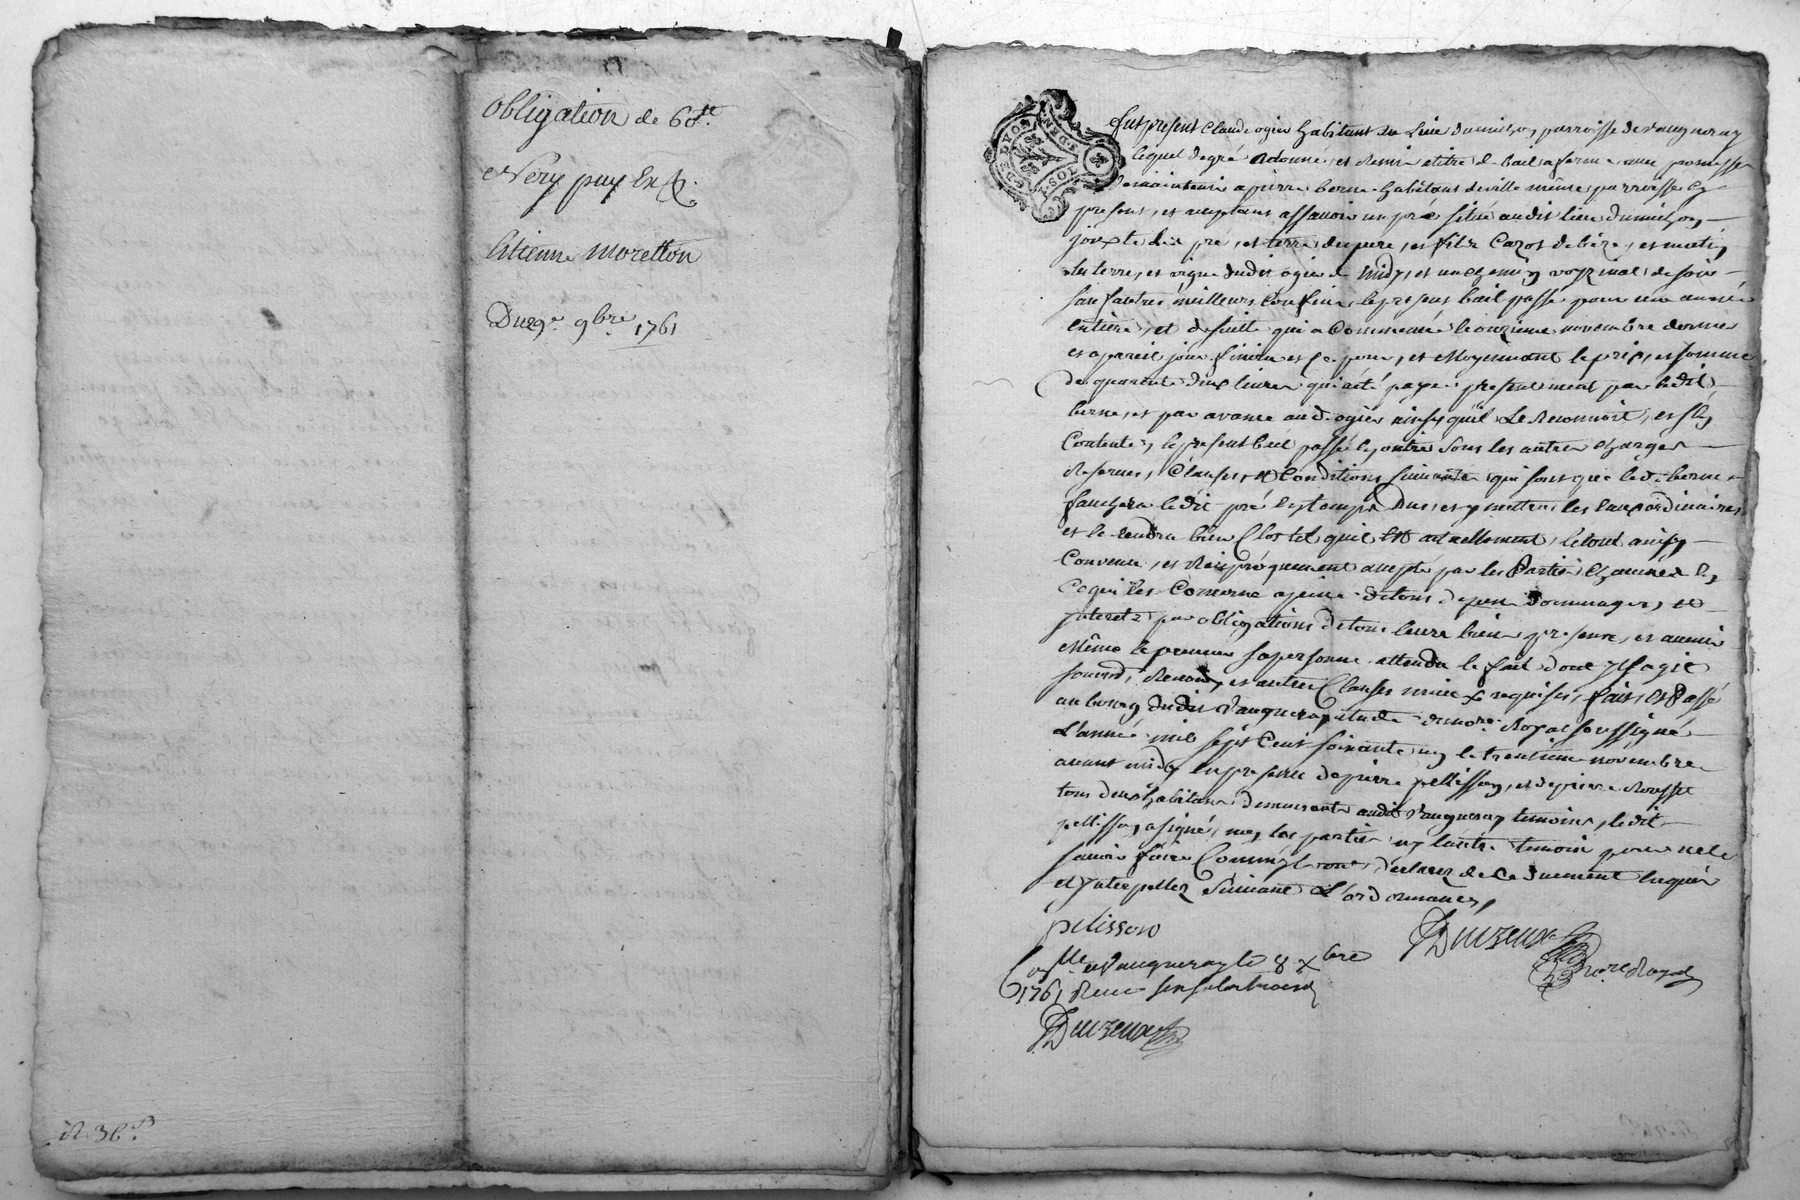 Obligation de 60ᵗᵗ
Nery puy En
Etienne moretton
Du 29ᵉ 9bre 1761
R. 36ˢ
fut present Claude ogier habitant du lieu du parroisse de vaugneray
lequel de gré a donné, et remis a titre de bail a ferme avec promesse
de maintenir a pierre berne habitant de ville même parroisse cy
present, et acceptant assavoir un pré situé audit lieu
jouxte le pré, et terre du pere, et fils de bize, et matin
la terre, et vigne dudit ogier de midy, et un chemin voyzinal de soir
sauf autres meilleurs confins, le present bail passé pour une année
entiere, et de suitte qui a commencé le onzieme novembre dernier
et a pareil jour finira et ce pour, et moyennant le prix, et somme
de quarente deux livres qui a été payé presentement par ledit
berne, et par avance aud. ogier ainsy qu'il le reconnoit, et s'en
contente, le present bail passé en outre sous les autres charges
reserves, Clauses, et Conditions suivantes qui sont que led. berne
fauchera ledit pré en temps Dus, et y mettra les eaux ordinaires
et le rendra bien Clos tel qu'il est actuellement, le tout ainsy
Convenu, et Reciproquement accepté par les Parties chacune en
ce qui les Concerne a peine de tous depens Dommages, et
interets par obligations de tous leurs biens presents, et avenir
même le premier sa personne attendu le fait dont il s'agit
soumis, Renon, et autres Clauses requises, fait, et Passé
au bourg dudit Vaugneray etude du nore. Royal soussigné
L'année mil sept Cent soixante un le trentieme novembre
avant midy en presence de pierre pellisson, et de pierre Rousset
tous deux habitans demeurants audit Vaugneray temoins, ledit
pellisson a signé, non les parties ny l'autre temoin pour ne le
savoir faire Comme ils ont declarez de ce duement enquis
et interpellez suivant L'ordonnance,
pelisson
Duzeux
nore Royal
Collé. a Vaugneray le 8 xbre
1761 Reçu
Duzeux